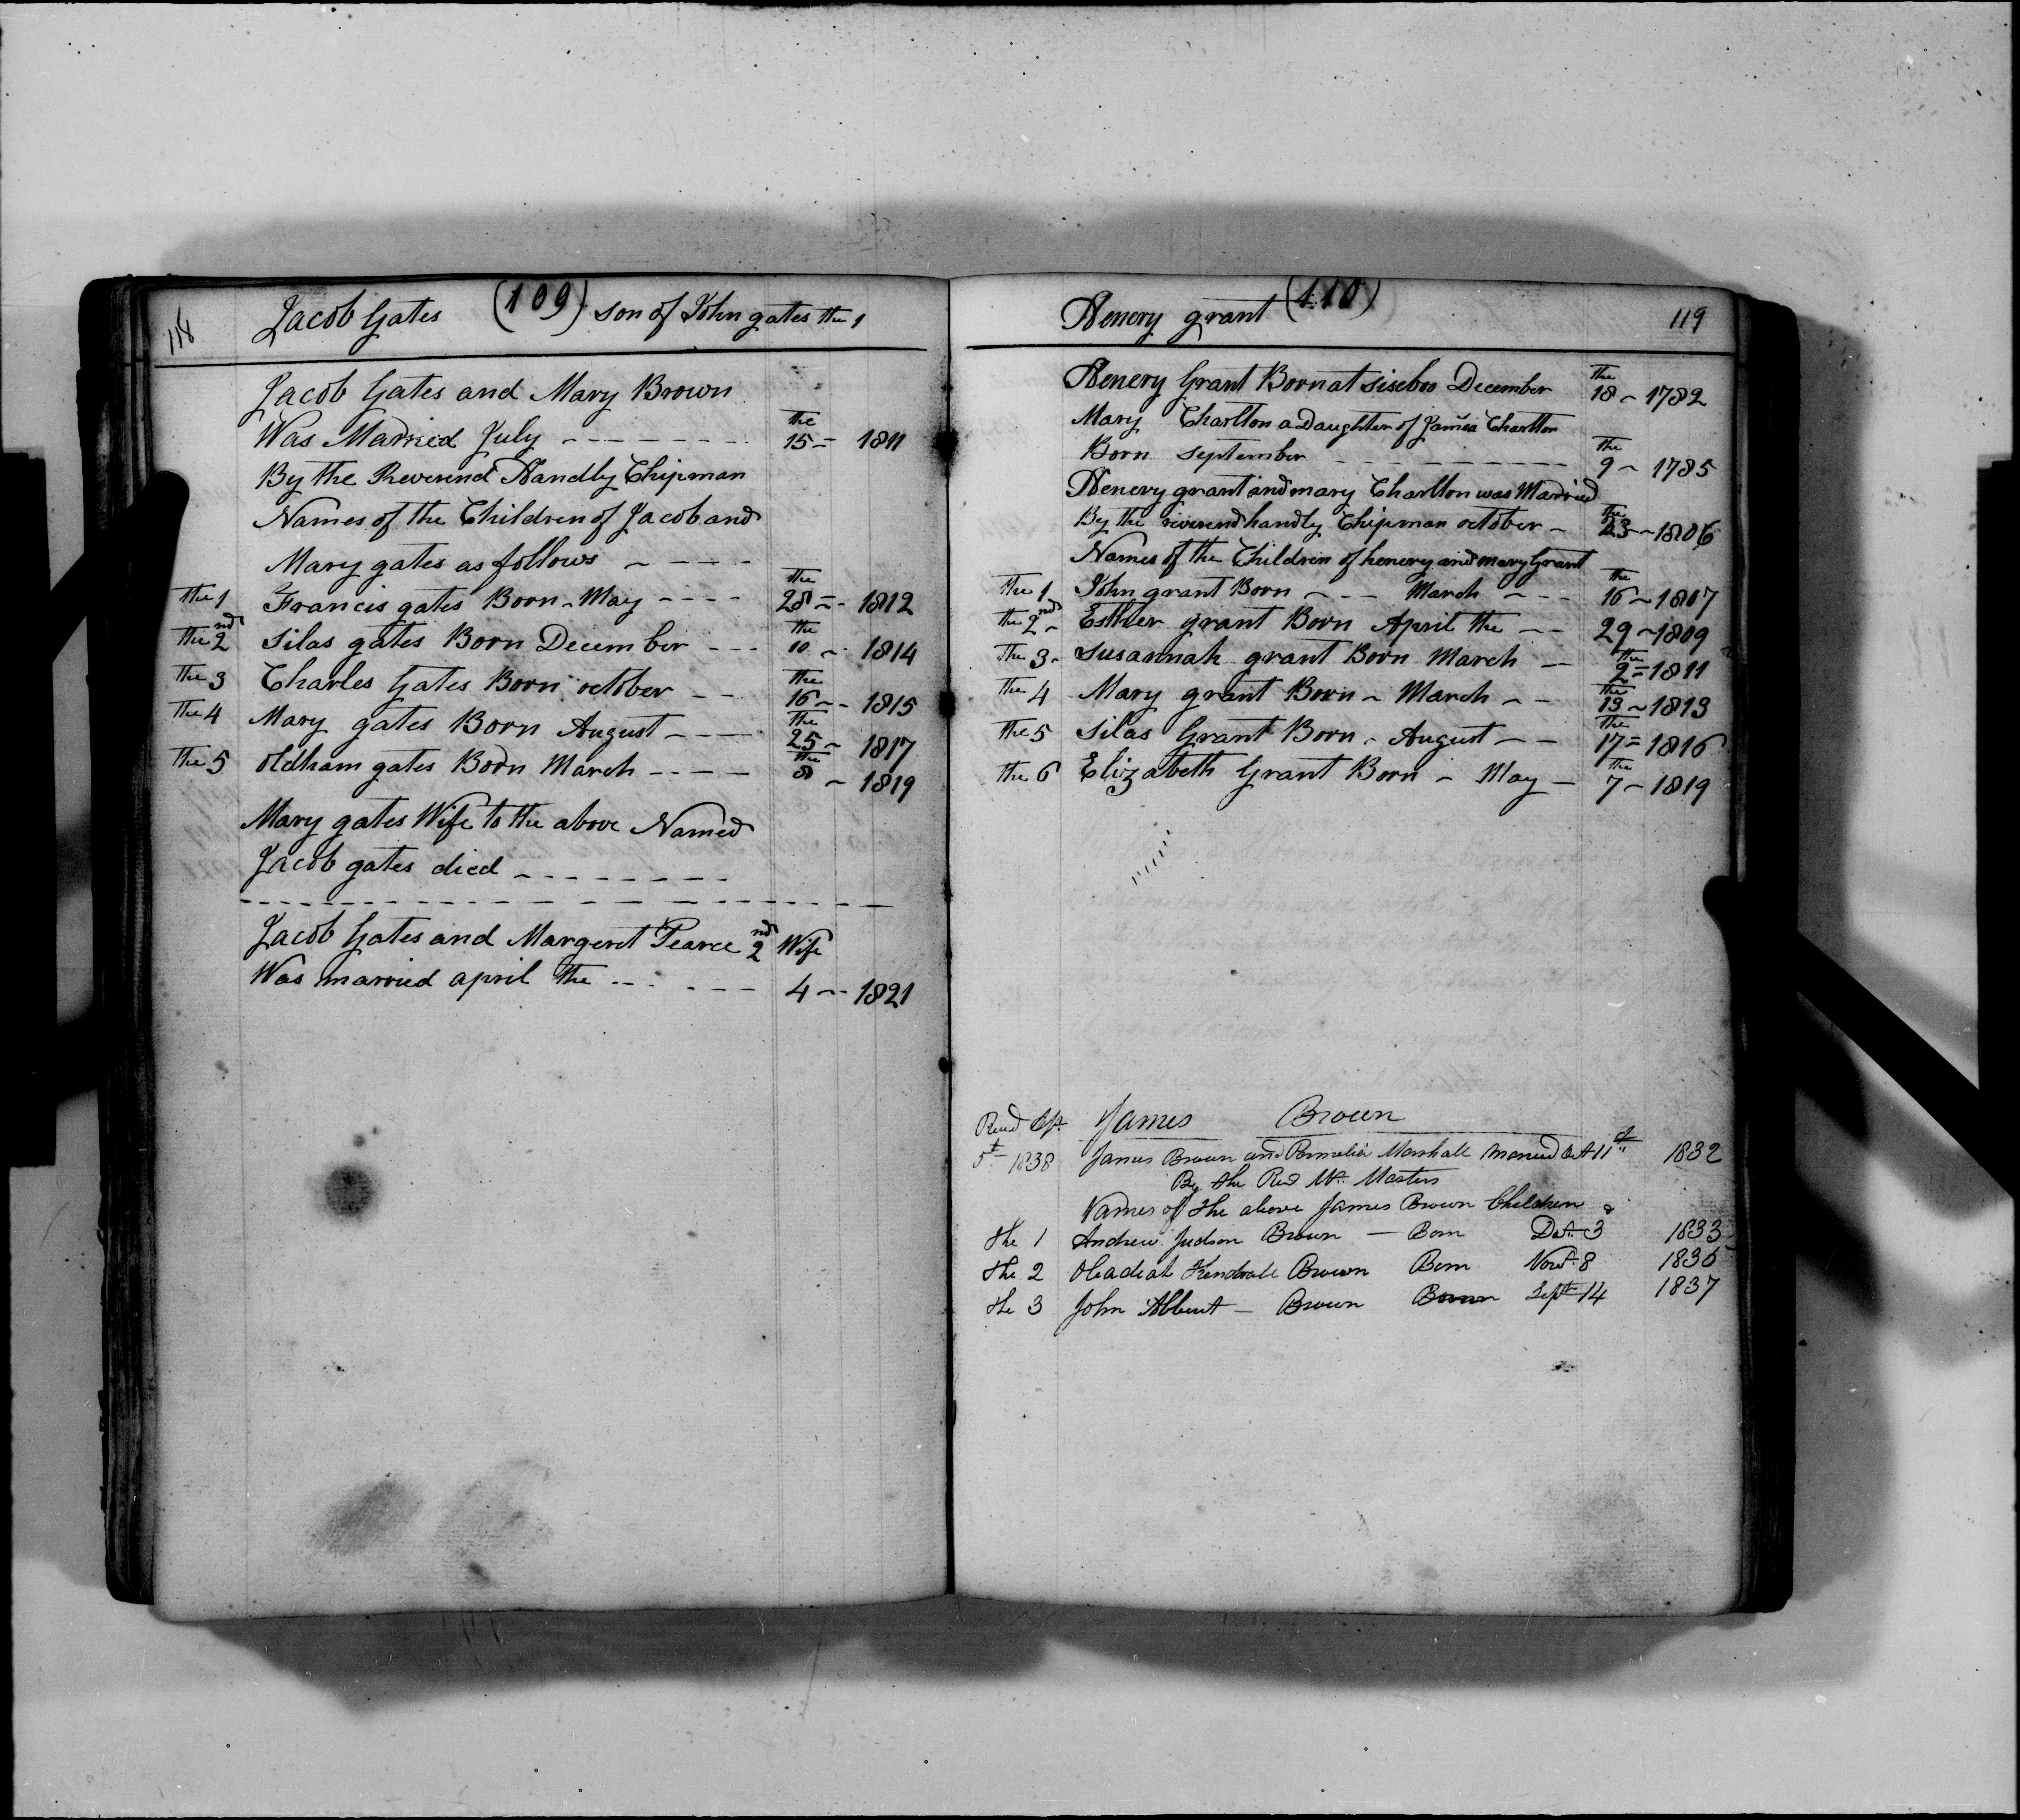 118 Jacob Gates (109) son of John gates the 1
Jacob Gates and Mary Brown
Was Married July - - - - - - - the 15 = 1811
By the Reverend Handly Chipman
Names of the Children of Jacob and
Mary gates as follows ~ - - - -
the 1 Francis gates Born - May - - - - the 28 = - 1812
the 2nd Silas gates Born December - - - the 10 ~ - 1814
the 3 Charles Gates Born october - - the 16 ~ - 1815
The 4 Mary gates Born August - - - - the 25 ~ 1817
The 5 oldham gates Born March - - - - the 8 ~ 1819
Mary gates Wife to the above Named
Jacob gates died - - - - - - - -
Jacob Gates and Margeret Pearce 2nd Wife
Was married april the - - - - - - 4 - - 1821
Henery grant (110) 119
Henery Grant Born at Siseboo December the 18 ~ 1782
Mary Charlton a Daughter of James Charlton
Born September - - - - - - - - the 9 ~ 1785
Henery grant and mary Charlton was Married
By the riverend handly Chipman october ~ the 23 ~ 1806
Names of the Children of henery and mary Grant
The 1 John grant Born ~ - - March ~ - - the 16 ~ 1807
the 2nd ~ Esther grant Born April the - - 29 ~ 1809
The 3 - Susannah grant Born March - the 2 = 1811
the 4 Mary grant Born ~ March ~ - the 13 ~ 1813
the 5 Silas Grant Born - August - - the 17 = 1816
the 6 Elizabeth Grant Born ~ May - the 7 ~ 1819
James Brown
5t 1838 James Brown and Permelia Marshall Married Oct 11th 1832
By the Revd Mr. Masters
Names of the above James Brown Children
The 1 Andrew Judson Brown - Born 3 1833
The 2 Obadiah Kendrall Brown Born Novr 8 1835
The 3 John Albert - Brown Born Sept 14 1837